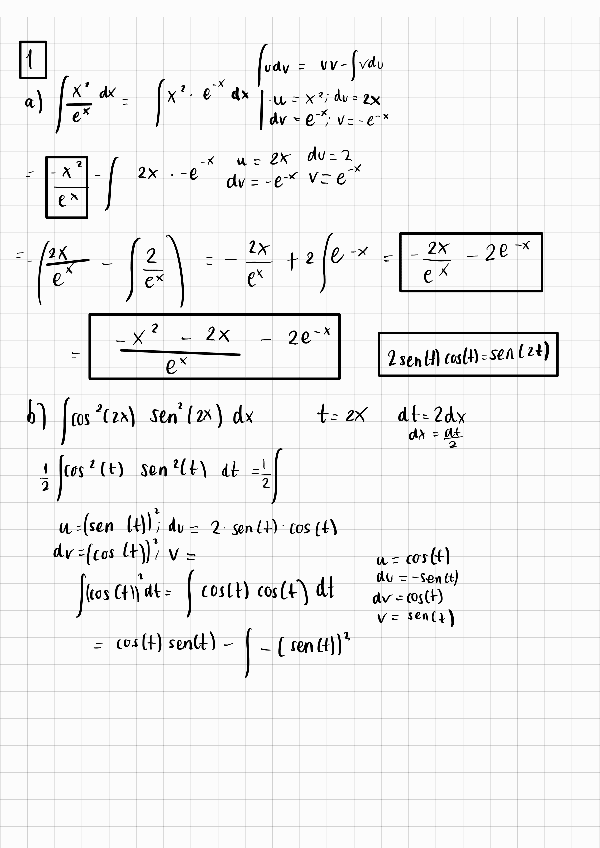 1
∫udv = uv - ∫vdu
a) ∫ x²/eˣ dx = ∫ x² · e⁻ˣ dx | u = x²; du = 2x
dv = e⁻ˣ; v = -e⁻ˣ
= -x²/eˣ - ∫ 2x · -e⁻ˣ u = 2x du = 2
dv = -e⁻ˣ v = e⁻ˣ
= -(2x/eˣ - ∫ 2/eˣ) = - 2x/eˣ + 2 ∫ e⁻ˣ = -2x/eˣ - 2e⁻ˣ
= (-x² - 2x)/eˣ - 2e⁻ˣ
2 sen(t) cos(t) = sen(2t)
b) ∫ cos²(2x) sen²(2x) dx t = 2x dt = 2dx
dx = dt/2
1/2 ∫ cos²(t) sen²(t) dt = 1/2 ∫
u = (sen (t))²; du = 2 · sen(t) · cos(t)
dv = (cos (t))²; v =
∫(cos(t))² dt = ∫ cos(t) cos(t) dt
u = cos(t)
du = -sen(t)
dv = cos(t)
v = sen(t)
= cos(t) sen(t) - ∫ - (sen(t))²